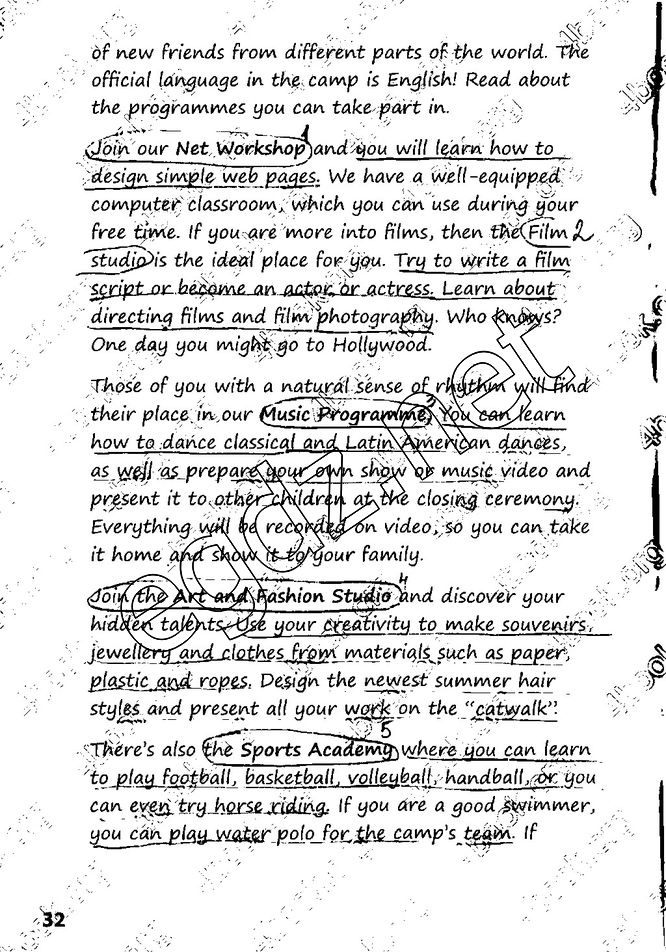 of new friends from different parts of the world. The
official language in the camp is English! Read about
the programmes you can take part in.
Join our Net Workshop 1 and you will learn how to
design simple web pages. We have a well-equipped
computer classroom, which you can use during your
free time. If you are more into films, then the Film 2
studio is the ideal place for you. Try to write a film
script or become an actor or actress. Learn about
directing films and film photography. Who knows?
One day you might go to Hollywood.
Those of you with a natural sense of rhythm will find
their place in our Music Programme. 3 You can learn
how to dance classical and Latin American dances,
as well as prepare your own show or music video and
present it to other children at the closing ceremony.
Everything will be recorded on video, so you can take
it home and show it to your family.
Join the Art and Fashion Studio 4 and discover your
hidden talents. Use your creativity to make souvenirs,
jewellery and clothes from materials such as paper,
plastic and ropes. Design the newest summer hair
styles and present all your work on the "catwalk"!
5
There's also the Sports Academy where you can learn
to play football, basketball, volleyball, handball, or you
can even try horse riding. If you are a good swimmer,
you can play water polo for the camp's team. If
32
egdz.net